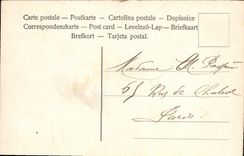 Carte postale - Postkarte - Cartolina postale - Dopisnice
Correspondenzkarte - Post card - Levelező-Lap - Briefkaart
Brefkort - Tarjeta postal.
Madame
65 Rue de
Paris